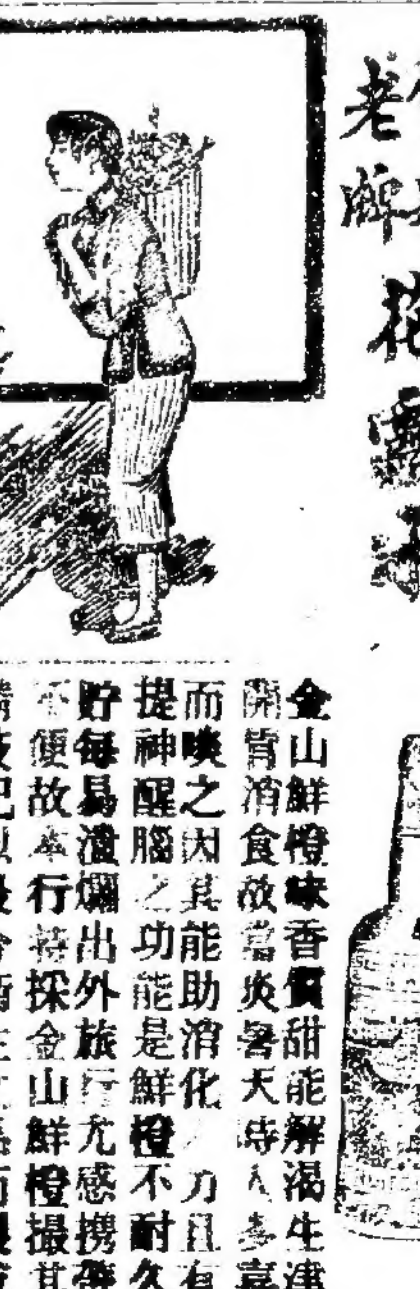 老牌
花露水
金山鮮橙味香質甜能解渴生津
開胃消食故當炎暑天時人多喜
而啖之因其能助消化之力且有
提神醒腦之功能是鮮橙不耐久
貯每易潰爛出外旅行尤感携帶
不便故本行特採金山鮮橙撮其